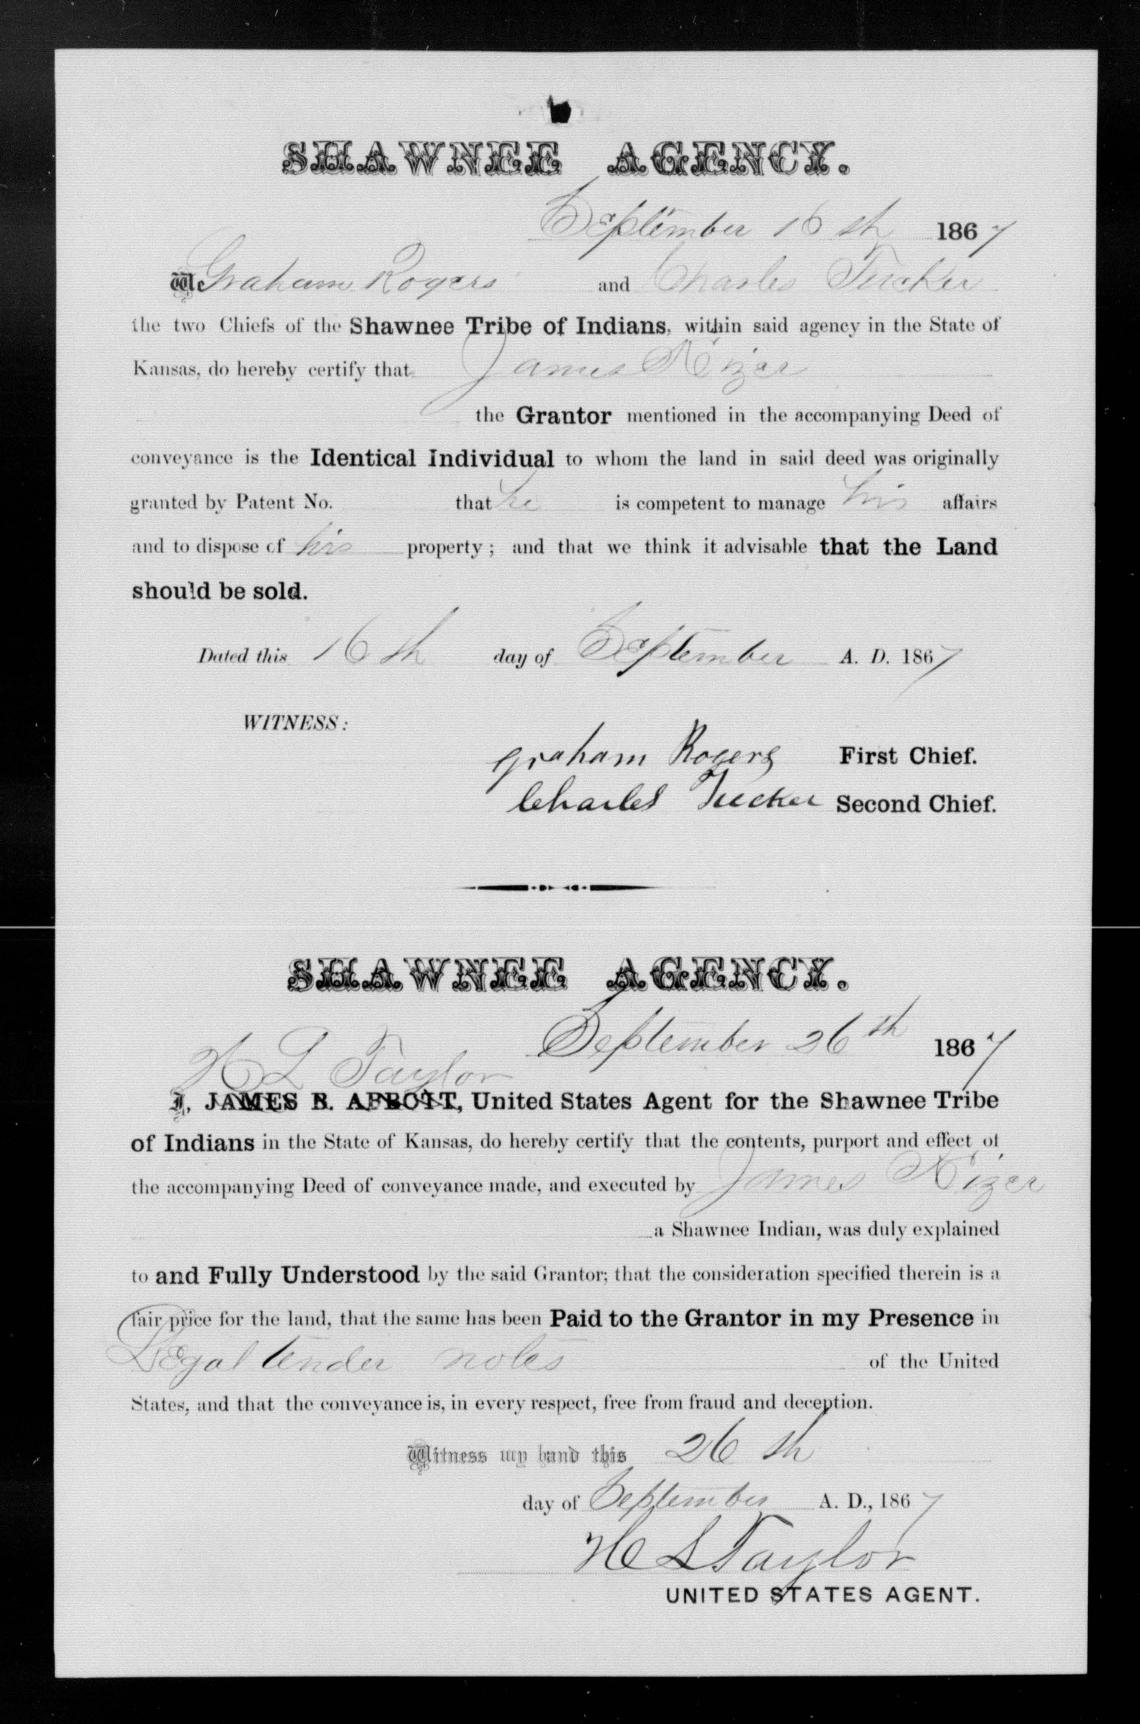 SHAWNEE AGENCY.
September 16th 1867
We Graham Rogers and Charles Tucker
the two Chiefs of the Shawnee Tribe of Indians, within said agency in the State of
Kansas, do hereby certify that James Kizer
the Grantor mentioned in the accompanying Deed of
conveyance is the Identical Individual to whom the land in said deed was originally
granted by Patent No. that he is competent to manage his affairs
and to dispose of his property; and that we think it advisable that the Land
should be sold.
Dated this 16th day of September A. D. 1867
WITNESS:
Graham Rogers First Chief.
Charles Tucker Second Chief.
SHAWNEE AGENCY.
September 26th 1867
H L Taylor
I, JAMES B. ABBOTT, United States Agent for the Shawnee Tribe
of Indians in the State of Kansas, do hereby certify that the contents, purport and effect of
the accompanying Deed of conveyance made, and executed by James Kizer
a Shawnee Indian, was duly explained
to and Fully Understood by the said Grantor; that the consideration specified therein is a
fair price for the land, that the same has been Paid to the Grantor in my Presence in
Legal tender notes of the United
States, and that the conveyance is, in every respect, free from fraud and deception.
Witness my hand this 26th
day of September A. D., 1867
H L Taylor
UNITED STATES AGENT.